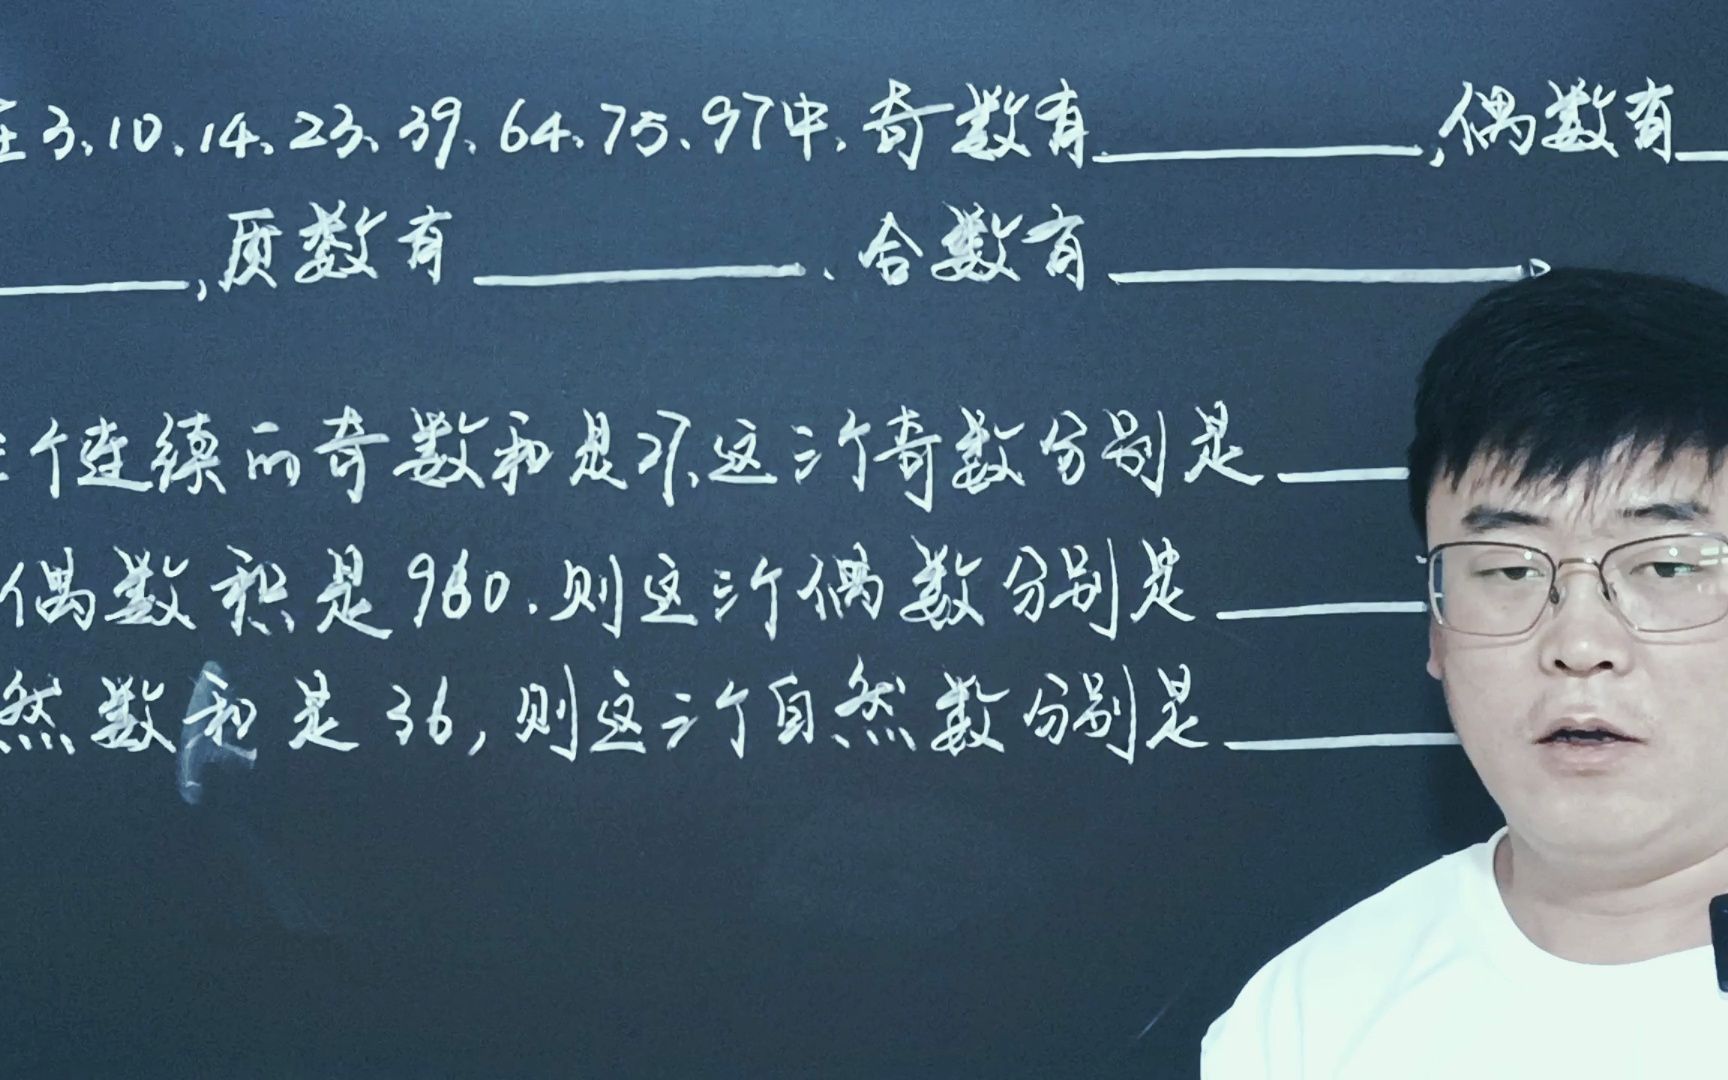 在3、10、14、23、39、64、75、97中、奇数有______,偶数有__
______,质数有______、合数有______。
个连续的奇数和是27、这三个奇数分别是____
偶数积是960.则这三个偶数分别是____
然数和是36,则这三个自然数分别是____